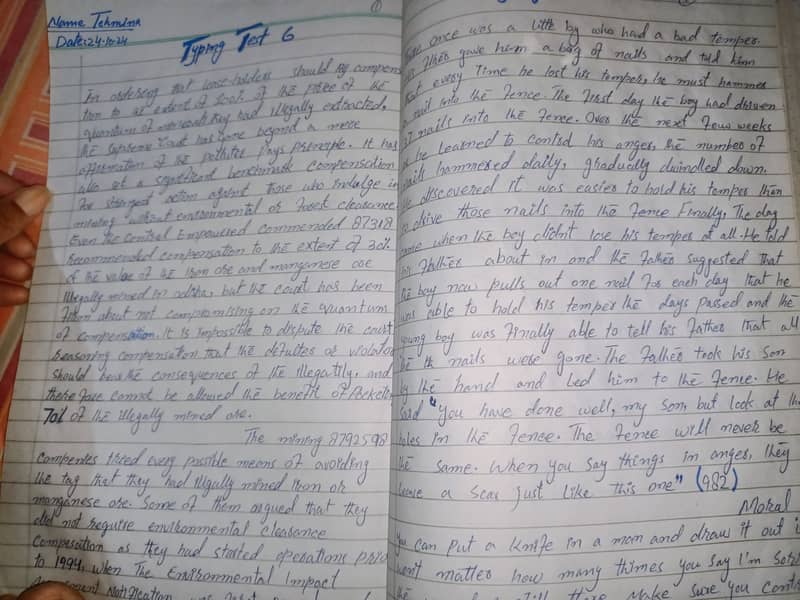 Name Tehmina
Date:24-10-24
Typing Test 6
In ordering that lease-holders should pay compen
tion to the extent of 100% of the price of the
quantum of minerals they had illegally extracted,
the Supreme Court has gone beyond a mere
affirmation of the polluter pays principle. It has
also set a significant benchmark compensation
for stringent action against those who indulge in
mining without environmental or forest clearance.
Even the Central Empowered commended 87318
Recommended compensation to the extent of 30%
of the value of the iron ore and manganese ore
illegally mined in odisha, but the court has been
firm about not compromising on the quantum
of compensation. It is impossible to dispute the court
Reasoning compensation that the defulter or violator
should bear the consequences of the illegality, and
there fore cannot be allowed the benefit of
70% of the illegally mined ore.
The mining 8792598
Companies tried every possible means of avoiding
the tag that they had illegully mined iron or
manganese ore. Some of them argued that they
did not require environmental clearance
Compesation as they had started operations prio
to 1994, when The Environmental Impact
Notification was
once was a little by who had a bad temper.
father gave him a bag of nails and told him
that every time he lost his temper, he must hammer
a nail into the fence. The first day the boy had driven
37 nails into the fence. Over the next few weeks
he learned to control his anger, the number of
nails hammered daily, gradually dwindled down.
He discovered it was easier to hold his temper then
to drive those nails into the fence Finally, The day
came when the boy didn't lose his temper at all. He told
his father about im and the father suggested that
the boy now pulls out one nail for each day that he
was able to hold his temper the days passed and the
young boy was finally able to tell his father that all
the nails were gone. The father took his son
by the hand and led him to the fence. He
said "You have done well, my son, but look at the
holes in the fence. The fence will never be
the same. When you say things in anger, they
leave a scar just like this one" (982)
Moral
You can put a knife in a man and draw it out i
won't matter how many thimes you say I'm sorr
the there. Make sure you contr